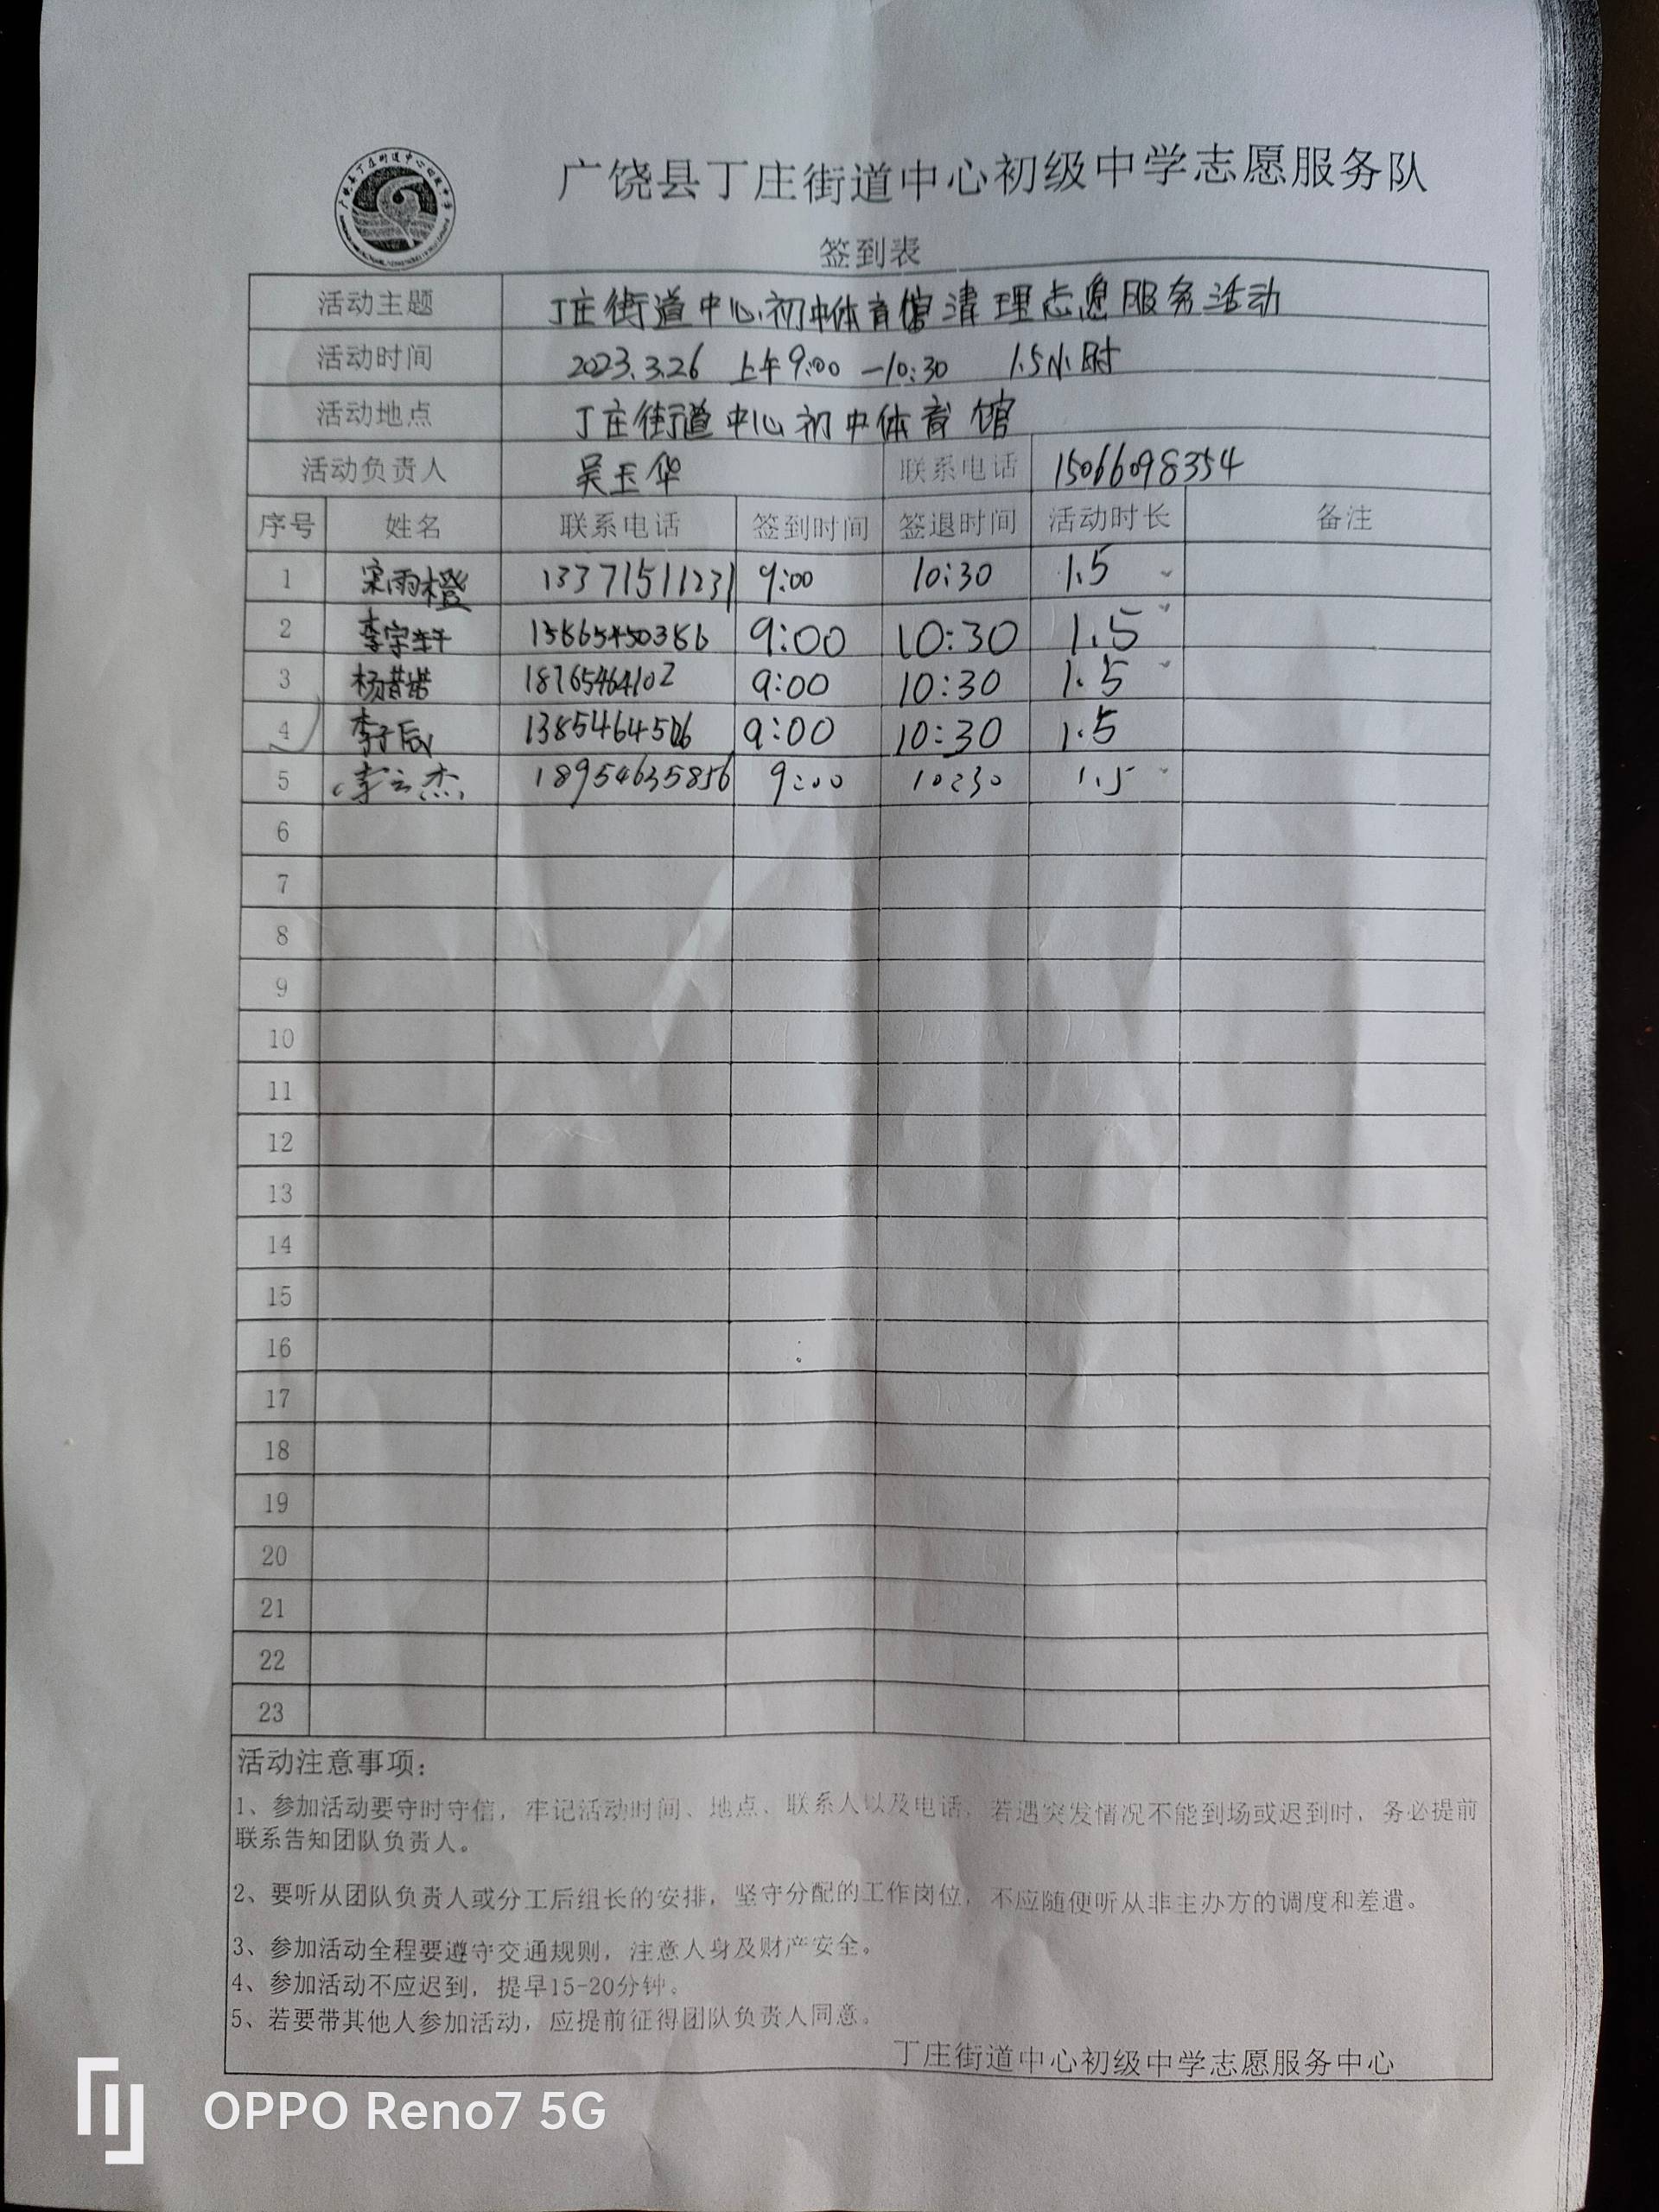 广饶县丁庄街道中心初级中学志愿服务队
签到表
活动主题 丁庄街道中心初中体育馆清理志愿服务活动
活动时间 2023.3.26 上午9:00 —10:30 1.5小时
活动地点 丁庄街道中心初中体育馆
活动负责人 吴玉华 联系电话 15066098354
序号 姓名 联系电话 签到时间 签退时间 活动时长 备注
1 宋雨橙 13371511231 9:00 10:30 1.5
2 李宇轩 15865450386 9:00 10:30 1.5
3 杨昔诺 18765464102 9:00 10:30 1.5
4 李子辰 13854645 9:00 10:30 1.5
5 李云杰 18954635856 9:00 10:30 1.5
6
7
8
9
10
11
12
13
14
15
16
17
18
19
20
21
22
23
活动注意事项：
1、参加活动要守时守信，牢记活动时间、地点、联系人以及电话，若遇突发情况不能到场或迟到时，务必提前
联系告知团队负责人。
2、要听从团队负责人或分工后组长的安排，坚守分配的工作岗位，不应随便听从非主办方的调度和差遣。
3、参加活动全程要遵守交通规则，注意人身及财产安全。
4、参加活动不应迟到，提早15-20分钟。
5、若要带其他人参加活动，应提前征得团队负责人同意。
丁庄街道中心初级中学志愿服务中心
OPPO Reno7 5G